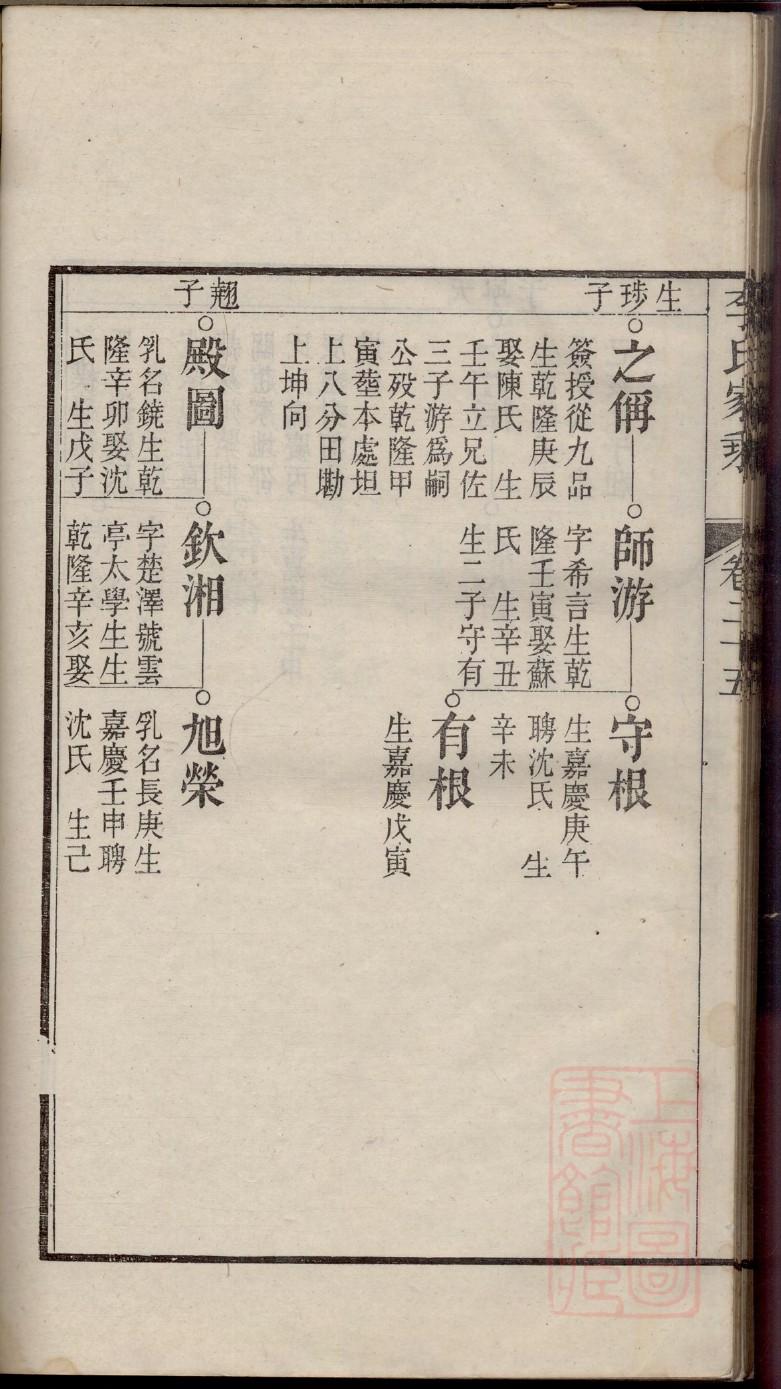 李氏家乘
卷二十五
生琗子
之偁
簽授從九品
生乾隆庚辰
娶陳氏　生
壬午立兄佐
三子游爲嗣
公歿乾隆甲
寅塟本處坦
上八分田勘
上坤向
師游
字希言生乾
隆壬寅娶蘇
氏　生辛丑
生二子守有
守根
生嘉慶庚午
聘沈氏　生
辛未
有根
生嘉慶戊寅
翹子
殿圖
乳名鐃生乾
隆辛卯娶沈
氏　生戊子
欽湘
字楚澤號雲
亭太學生生
乾隆辛亥娶
旭榮
乳名長庚生
嘉慶壬申聘
沈氏　生己
上海圖
書館藏